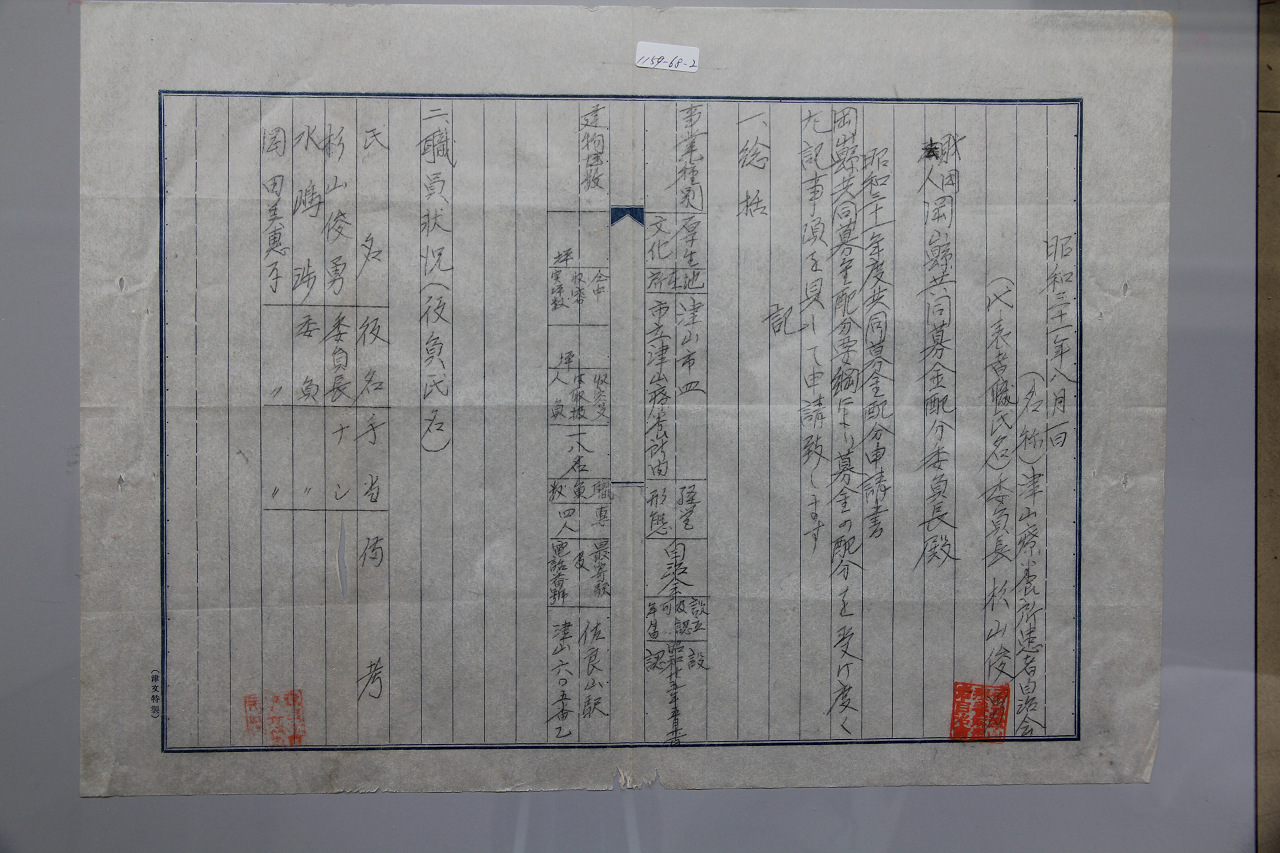 1154-68-2
昭和三十一年八月一日
(名称)津山療養所患者自治会
(代表者職氏名)委員長 杉山俊勇
財団法人 岡山縣共同募金配分委員長殿
昭和三十一年度共同募金配分申請書
岡山縣共同募金配分要綱により募金の配分を受け度く
左記事項を具して申請致します
記
一、総括
事業種別
厚生文化
所在地
津山市皿
市立津山療養所内
経営形態
自治会
設立及認可年月
設
認
建物坪数
坪
人員
一八名
専職員数
四人
最寄駅及電話番号
佐良山駅
津山六〇五番乙
二、職員状況(役員氏名)
氏名 役名 手当 備考
杉山俊勇 委員長 ナシ
水嶋渉 委員 〃
岡田美恵子 〃 〃
(津文特製)